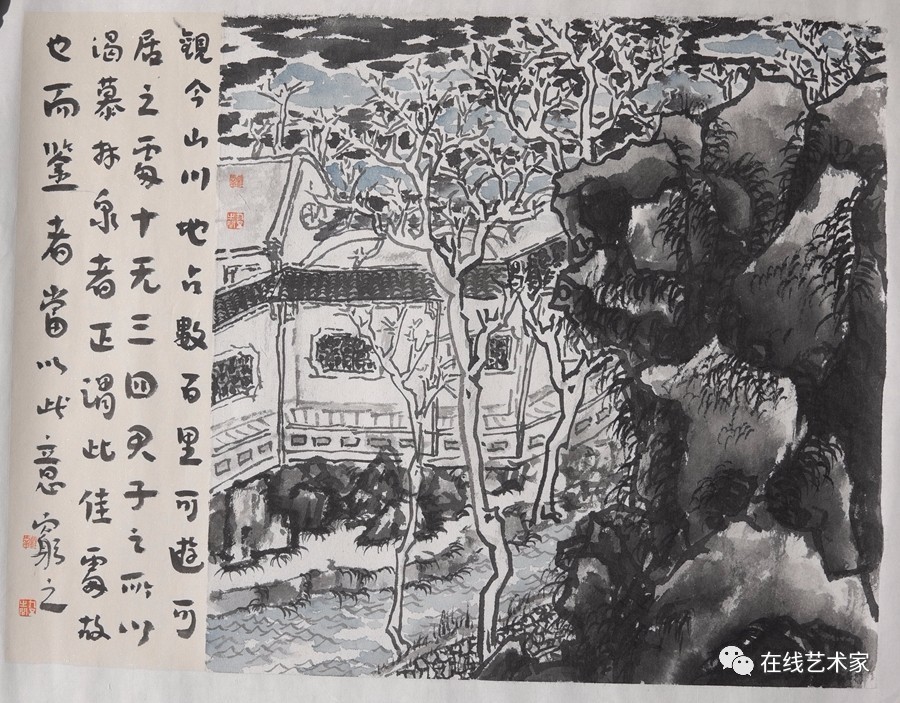 觀今山川地占數百里可遊可
居之處十无三四君子之所以
渴慕林泉者正謂此佳處故
也而鉴者當以此意窮之
在线艺术家